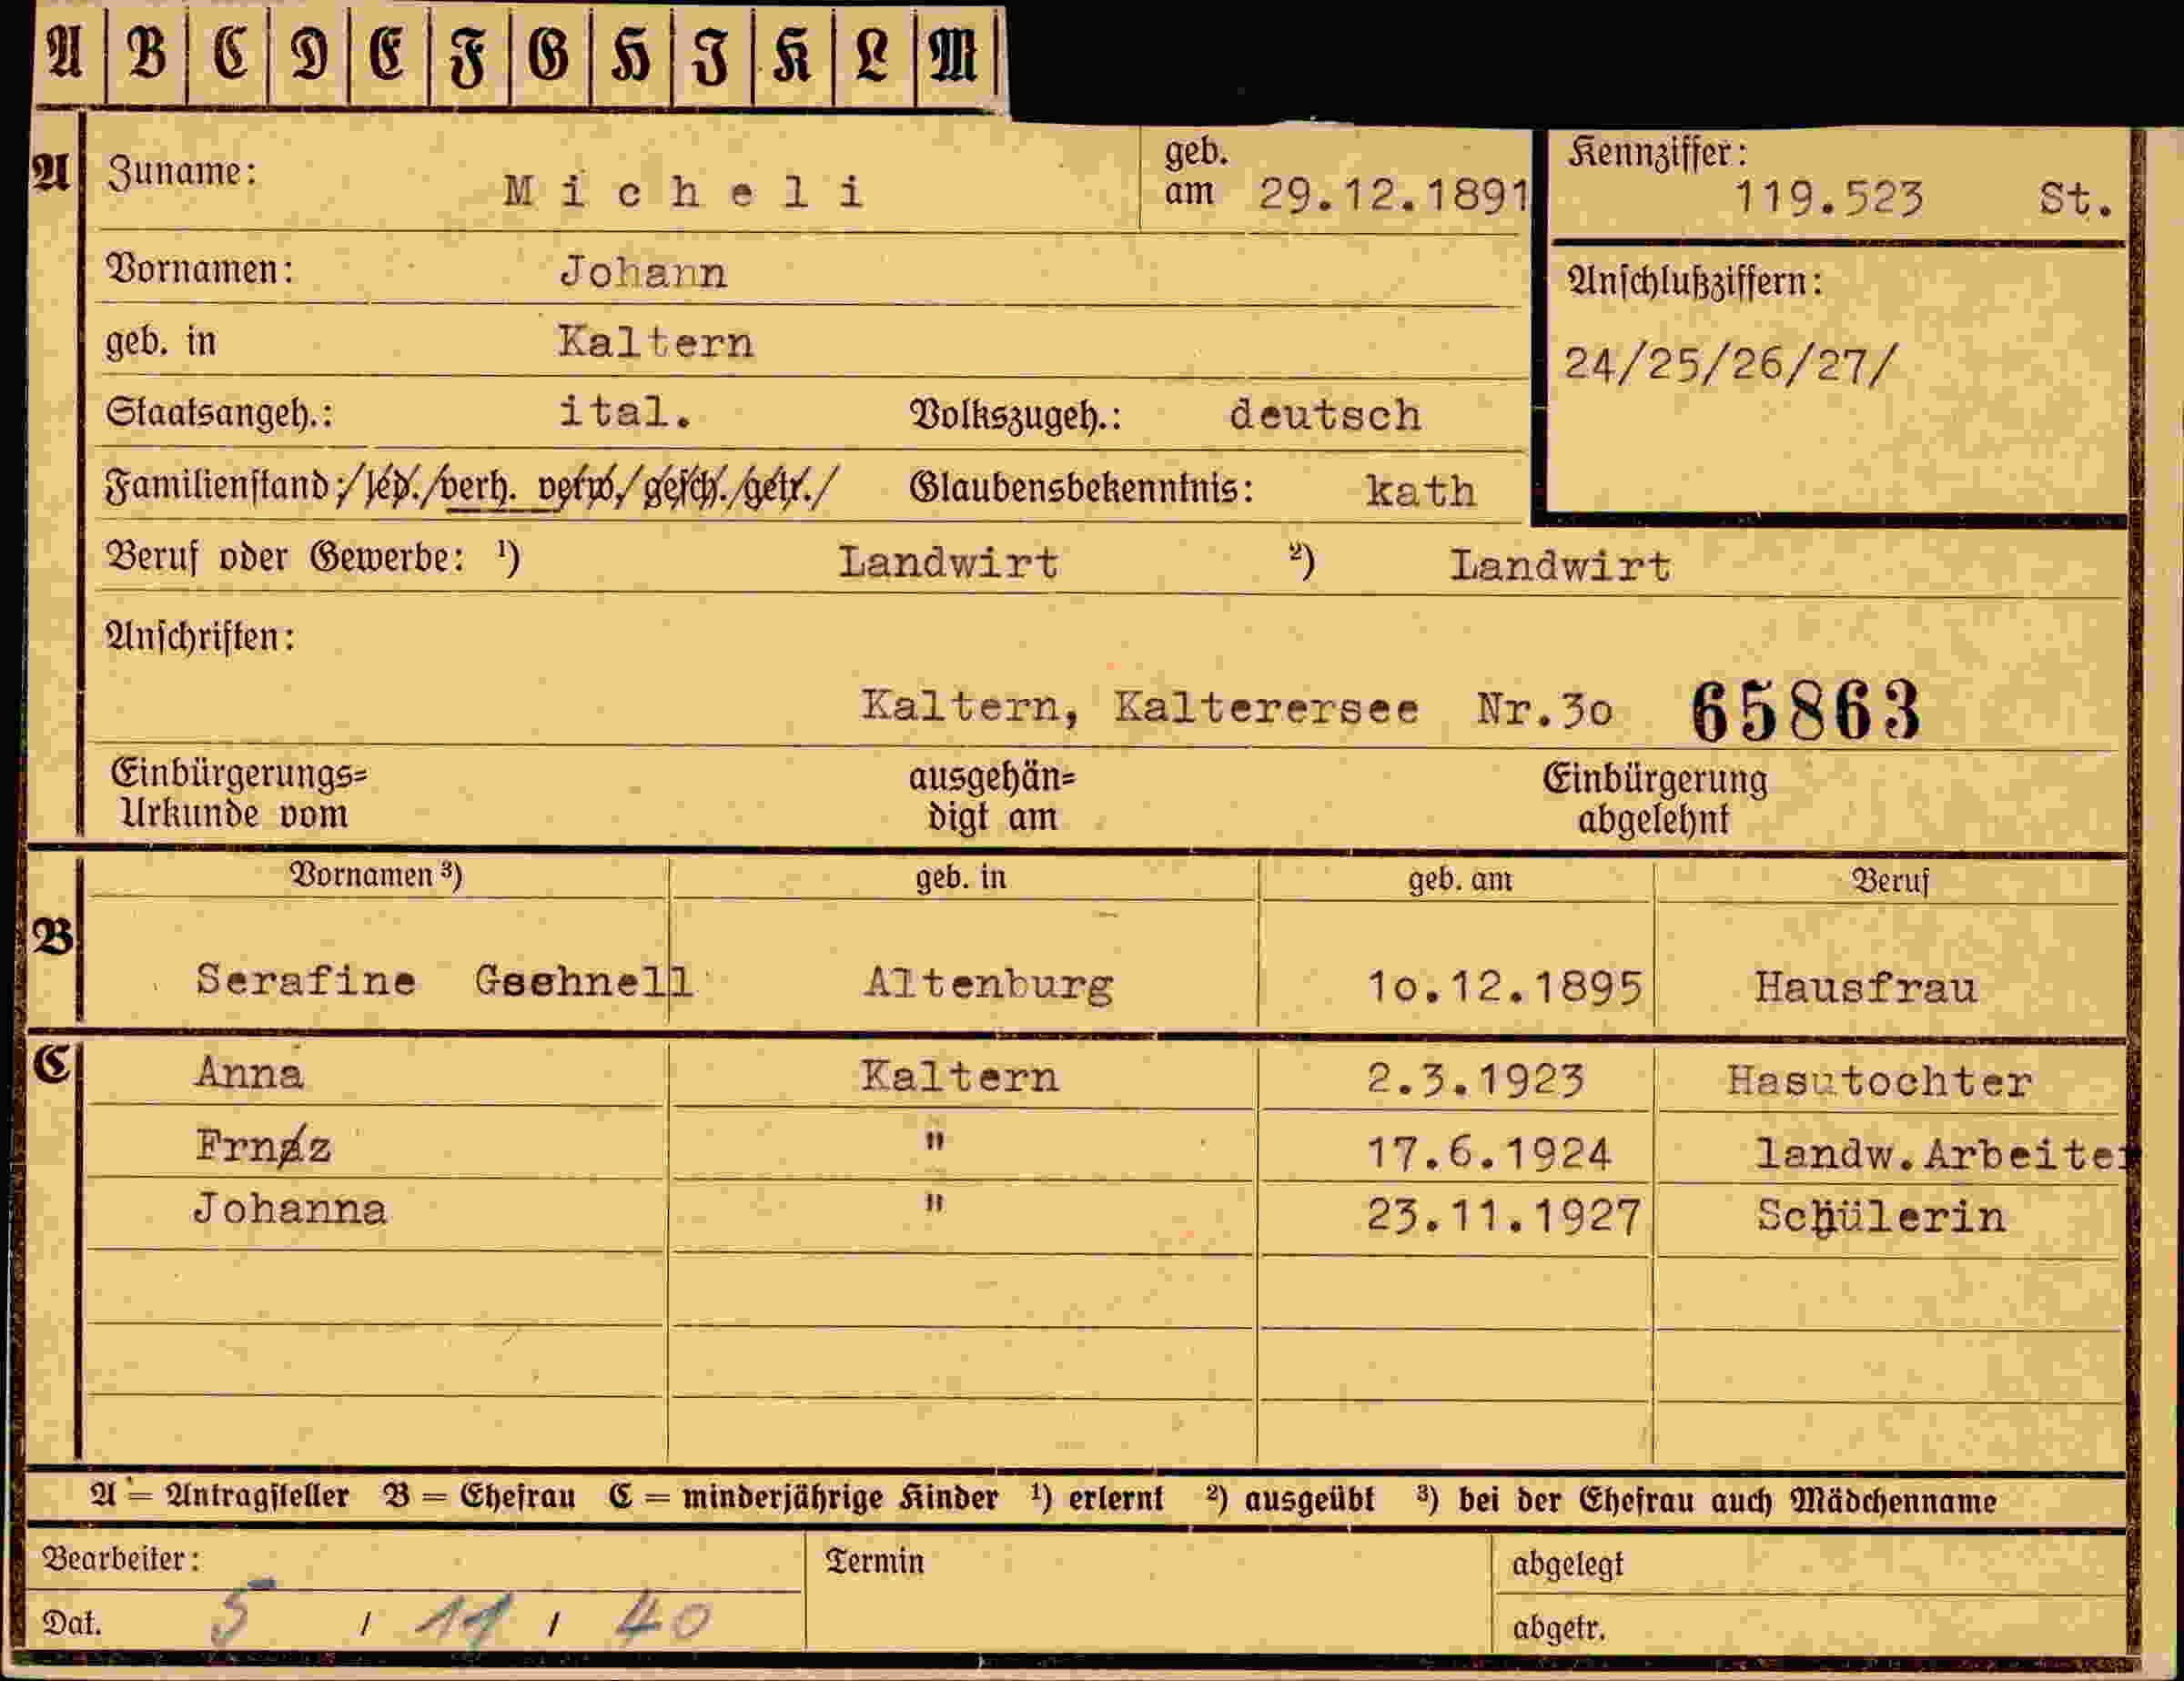 A B C D E F G H I K L M
A Zuname: Micheli geb. am 29.12.1891 Kennziffer: 119.523 St.
Vornamen: Johann Anschlußziffern:
geb. in Kaltern 24/25/26/27/
Staatsangeh.: ital. Volkszugeh.: deutsch
Familienstand: /led./verh. verw./gesch./getr./ Glaubensbekenntnis: kath
Beruf oder Gewerbe: ¹) Landwirt ²) Landwirt
Anschriften:
Kaltern, Kalterersee Nr.3o 65863
Einbürgerungs= ausgehän= Einbürgerung
Urkunde vom digt am abgelehnt
Vornamen ³) geb. in geb. am Beruf
B
Serafine Gschnell Altenburg 1o.12.1895 Hausfrau
C Anna Kaltern 2.3.1923 Hasutochter
Frnaz " 17.6.1924 landw.Arbeiter
Johanna " 23.11.1927 Schülerin
A = Antragsteller B = Ehefrau C = minderjährige Kinder ¹) erlernt ²) ausgeübt ³) bei der Ehefrau auch Mädchenname
Bearbeiter: Termin abgelegt
Dat. 5 / 11 / 40 abgetr.